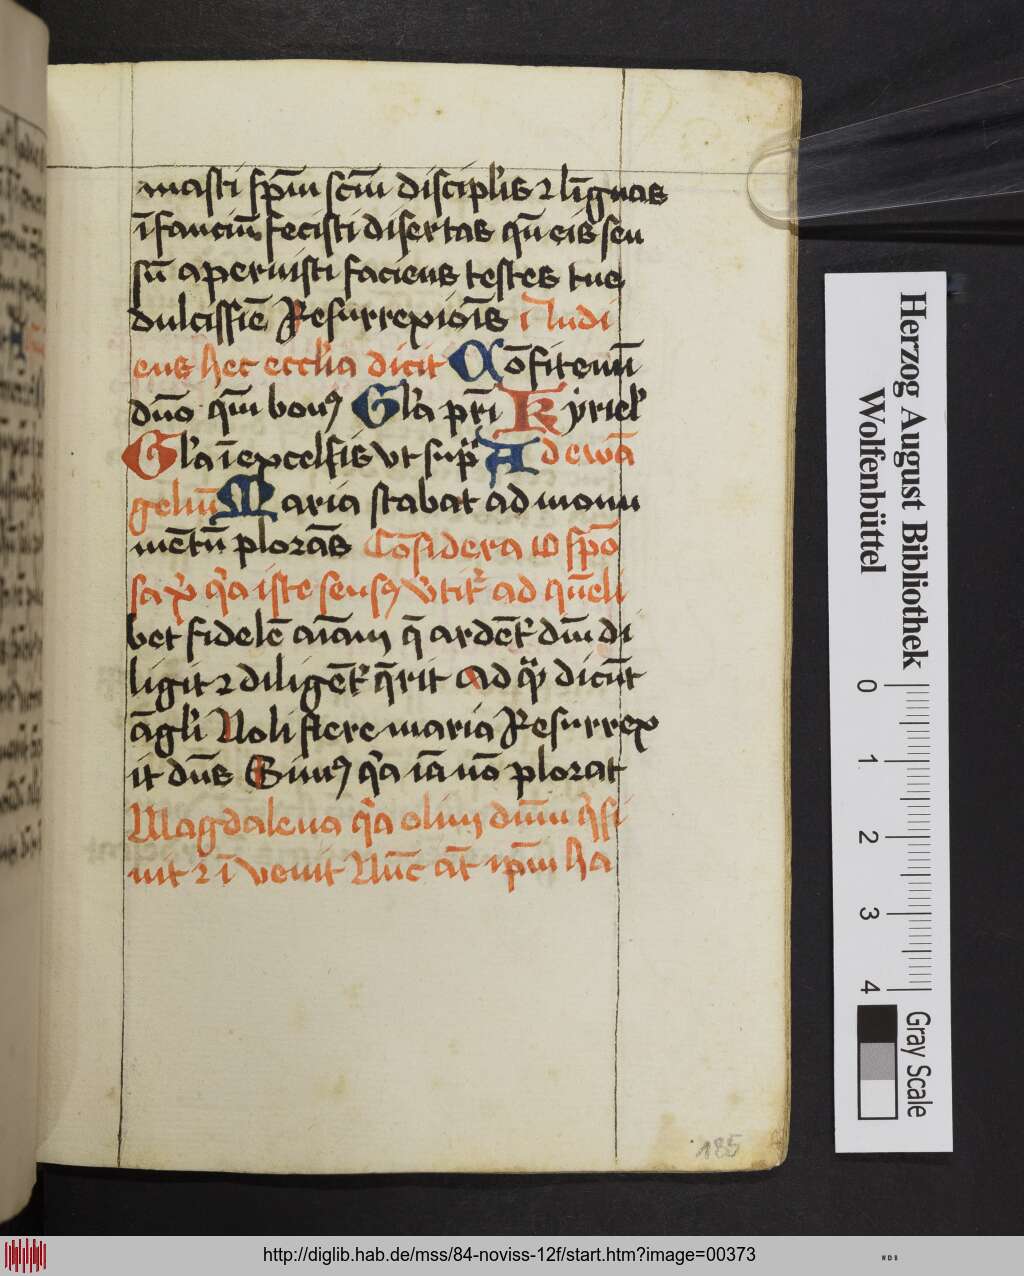 masti spm̄ scm̄ discipl'is ⁊ līguas
īfanciū fecisti disertas qn̄ eis sen
sū aperuisti faciens testes tue
dulcissīe Resurrexiōis īludi
ens hec eccl'ia dicit Cōfitemī
dn̄o qm̄ bonꝰ Gl'a pr̄i Kyriel'
Gl'a ī excelsis vt sup̄ Ad ewā
geliū Maria stabat ad monu
mētū plorās Cōsidera io spō
sa xͥ qͥa iste sensꝰ vtitͬ ad quēli
bet fidelē aīam q̄ ardēt' dm̄ di
ligit ⁊ diligēt' q̄rit Ad qͣ dicūt
āgl'i Noli flere maria Resurrex
it dn̄s Sinꝰ qͥa iā nō plorat
Magdalena qͥa olim dnm̄ q̄si
uit ⁊ īvenit Nūc at̄ ip̄m ha
185
Herzog August Bibliothek
Wolfenbüttel
0
1
2
3
4
Gray Scale
http://diglib.hab.de/mss/84-noviss-12f/start.htm?image=00373